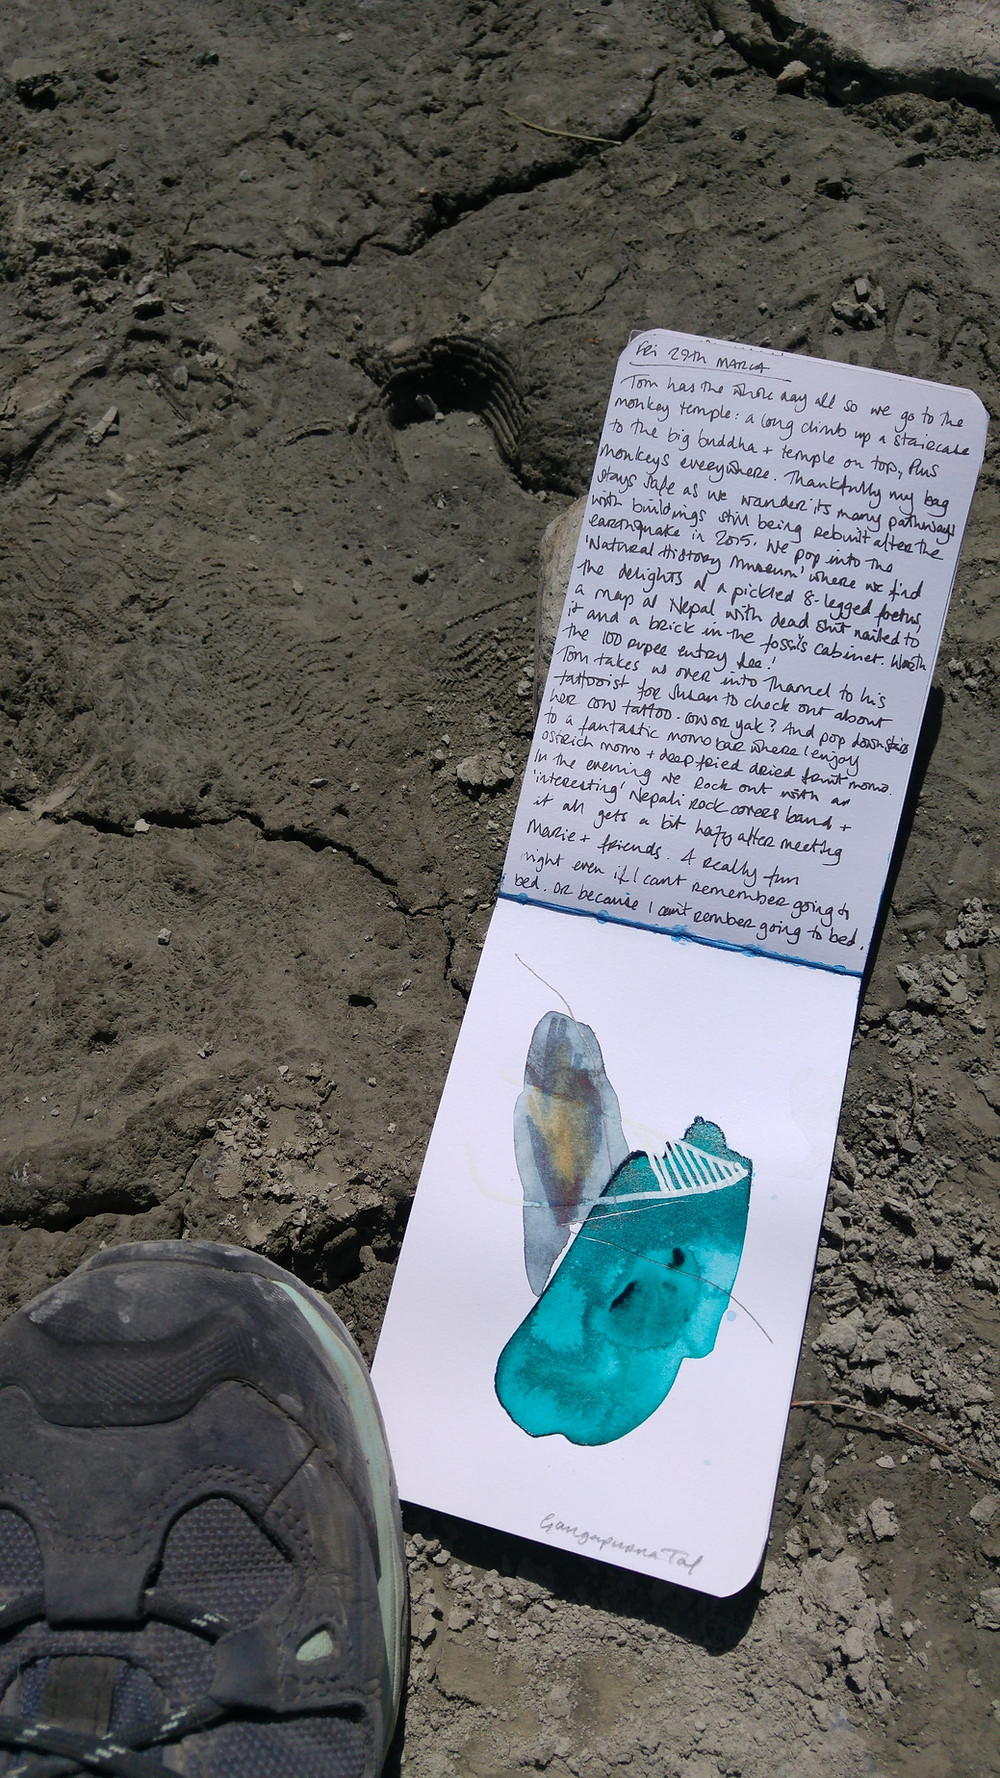 Fri 29th MARCH
Tom has the whole day all so we go to the
monkey temple: a long climb up a staircase
to the big buddha + temple on top, plus
monkeys everywhere. Thankfully my bag
stays safe as we wander its many pathways
with buildings still being rebuilt after the
earthquake in 2015. We pop into the
'Natural History Museum' where we find
the delights of a pickled 8-legged foetus,
a map of Nepal with dead shit nailed to
it and a brick in the fossils cabinet. Worth
the 100 rupee entry fee!
Tom takes us over into Thamel to his
tattooist for Susan to check out about
her cow tattoo. cow or yak? And pop downstairs
to a fantastic momo bar where I enjoy
ostrich momo + deep fried dried fruit momo.
In the evening we Rock out with an
'interesting' Nepali Rock covers band +
it all gets a bit hazy after meeting
Marie + friends. A really fun
night even if I can't remember going to
bed. Or because I can't rember going to bed.
Gangapurna Tal